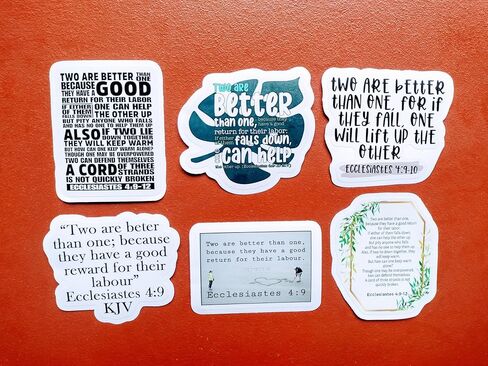 TWO ARE BETTER THAN ONE
BECAUSE THEY HAVE A GOOD
RETURN FOR THEIR LABOR
IF EITHER OF THEM FALLS DOWN ONE CAN HELP
THE OTHER UP
BUT PITY ANYONE WHO FALLS
AND HAS NO ONE TO HELP THEM UP
ALSO IF TWO LIE DOWN TOGETHER
THEY WILL KEEP WARM
BUT HOW CAN ONE KEEP WARM ALONE?
THOUGH ONE MAY BE OVERPOWERED
TWO CAN DEFEND THEMSELVES
A CORD OF THREE STRANDS
IS NOT QUICKLY BROKEN
ECCLESIASTES 4:9-12
Two are
Better
than one, because they have a good
return for their labor:
If either of them falls down,
one can help
the other up.
TWO ARE BETTER
THAN ONE, FOR IF
THEY FALL, ONE
WILL LIFT UP THE
OTHER
ECCLESIASTES 4:9-10
"Two are beter
than one; because
they have a good
reward for their
labour"
Ecclesiastes 4:9
KJV
Two are better than one,
because they have a good
return for their labour.
Ecclesiastes 4:9
Two are better than one,
because they have a good return
for their labor:
If either of them falls down,
one can help the other up.
But pity anyone who falls
and has no one to help them up.
Also, if two lie down together, they
will keep warm.
But how can one keep warm
alone?
Though one may be overpowered,
two can defend themselves.
A cord of three strands is not
quickly broken.
Ecclesiastes 4:9-12